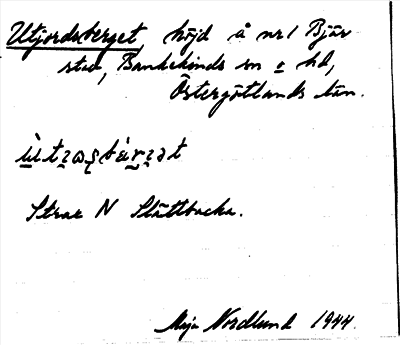 Utjordsberget, höjd å nr 1 Bjär
stad, Bankekinds sn o hd,
Östergötlands län.
Strax N Slättbacka.
Maja Nordlund 1944.